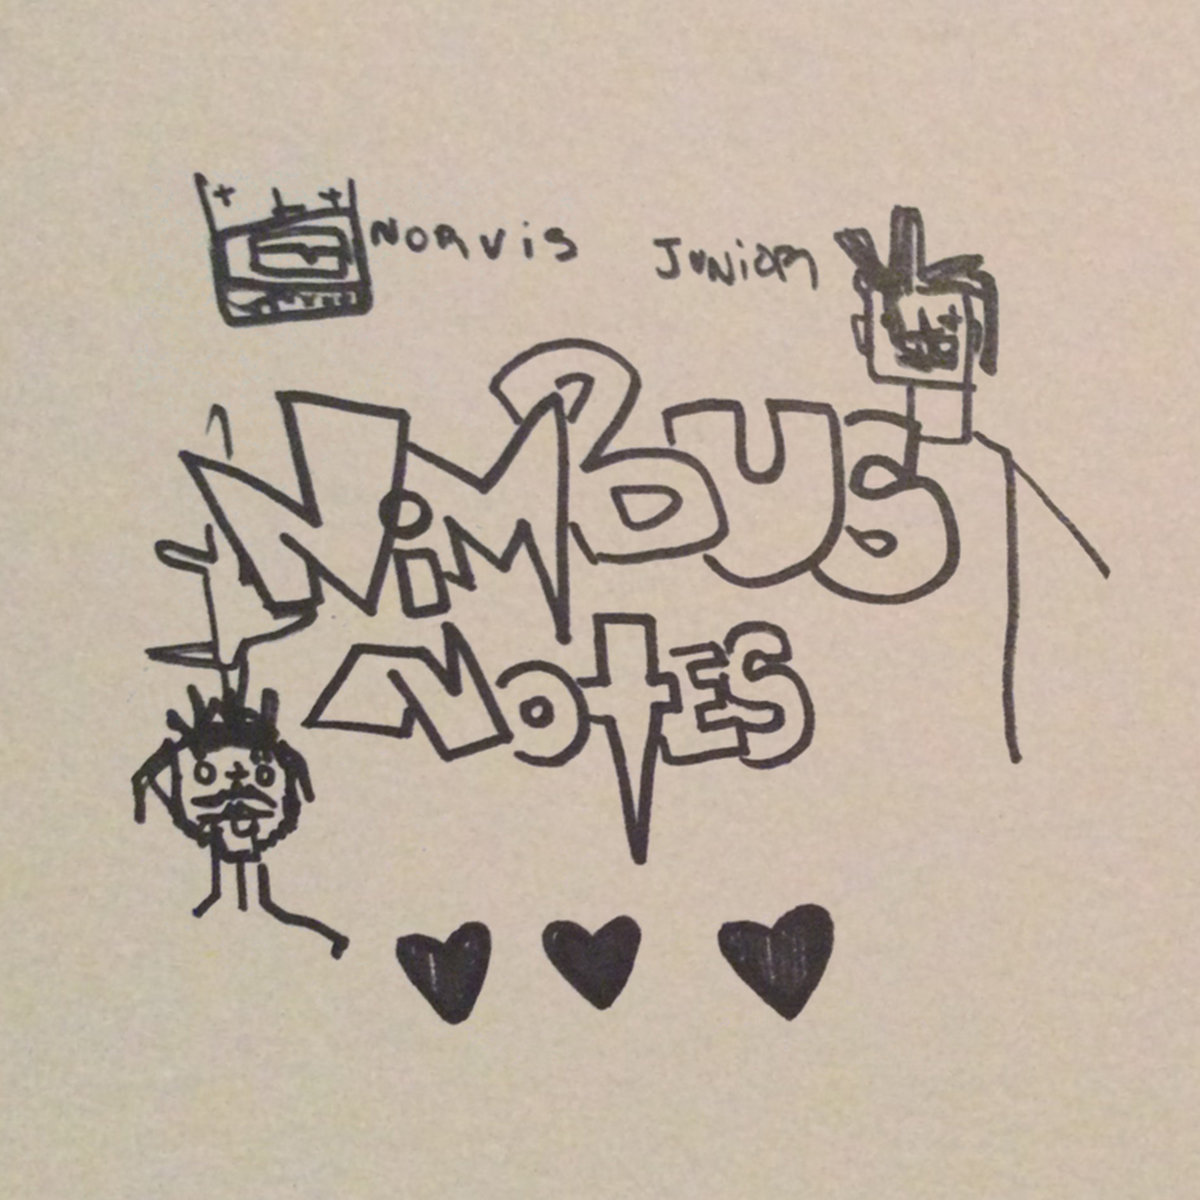 NORVIS JUNIOR
NiMBUS
NOtES